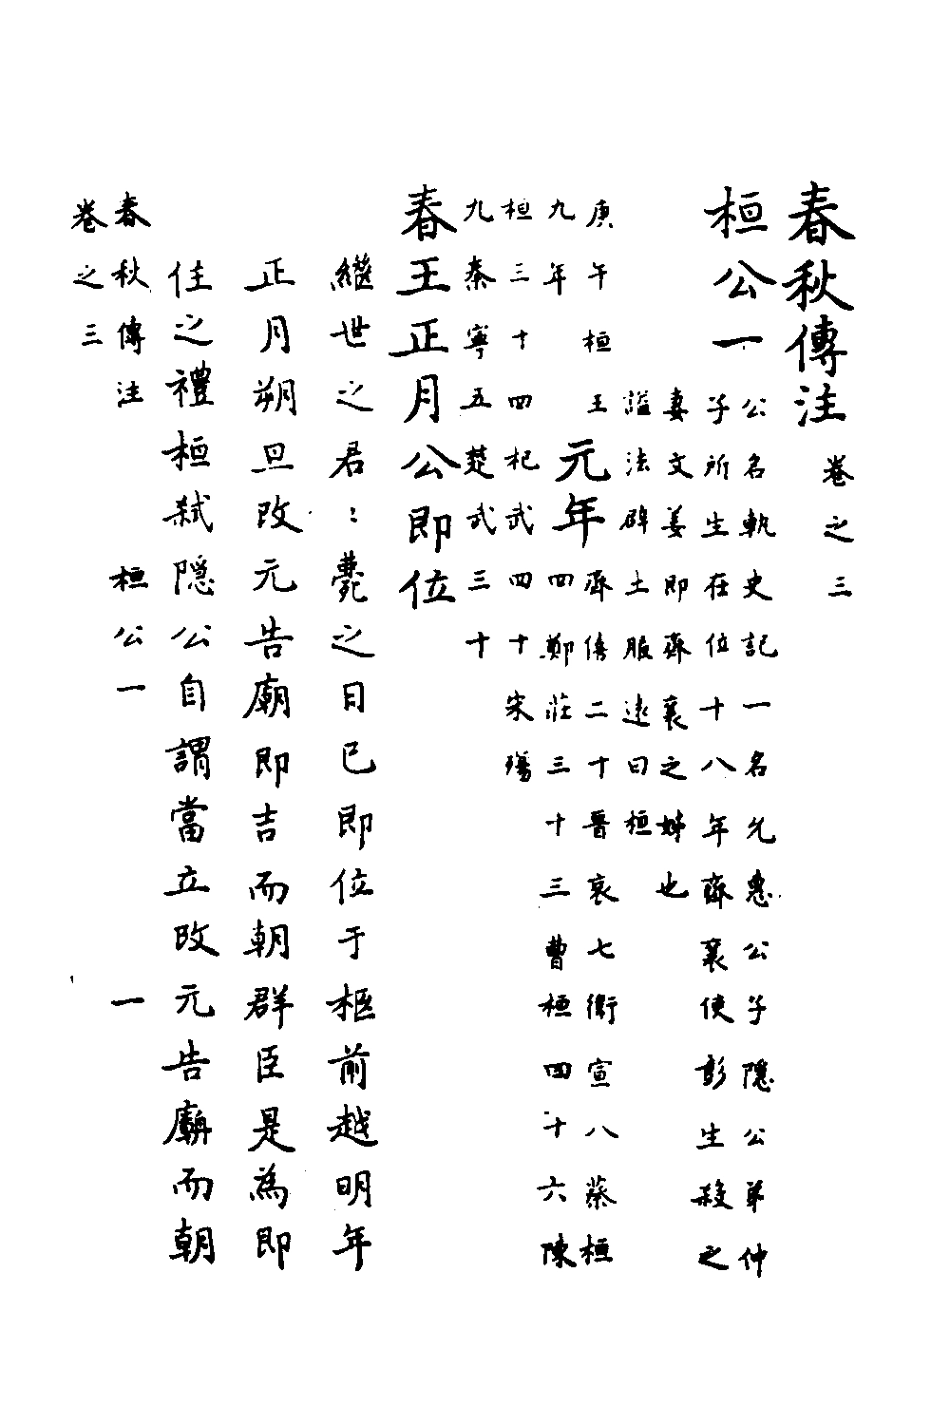 春秋傳注 卷之三
桓公一 公名軌史記一名允惠公子隱公弟仲
子所生在位十八年齊襄使彭生殺之
妻文姜即齊襄之姊也
謚法辟土服遠曰桓
庚午桓王
九年
元年
齊僖二十晉哀七衛宣八蔡桓
四鄭莊三十三曹桓四十六陳
桓三十四杞武四十宋殤
九秦寧五楚武三十
春王正月公即位
繼世之君：薨之日已即位于柩前越明年
正月朔旦改元告廟即吉而朝群臣是為即
住之禮桓弒隱公自謂當立改元告廟而朝
春秋傳注 桓公一 一
卷之三